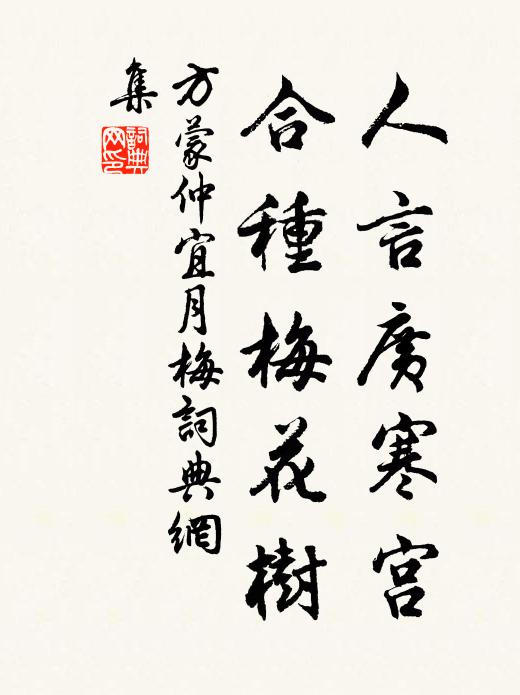 人言廣寒宫
合種梅花樹
方蒙仲宜月梅詞典網
集
詞典網印